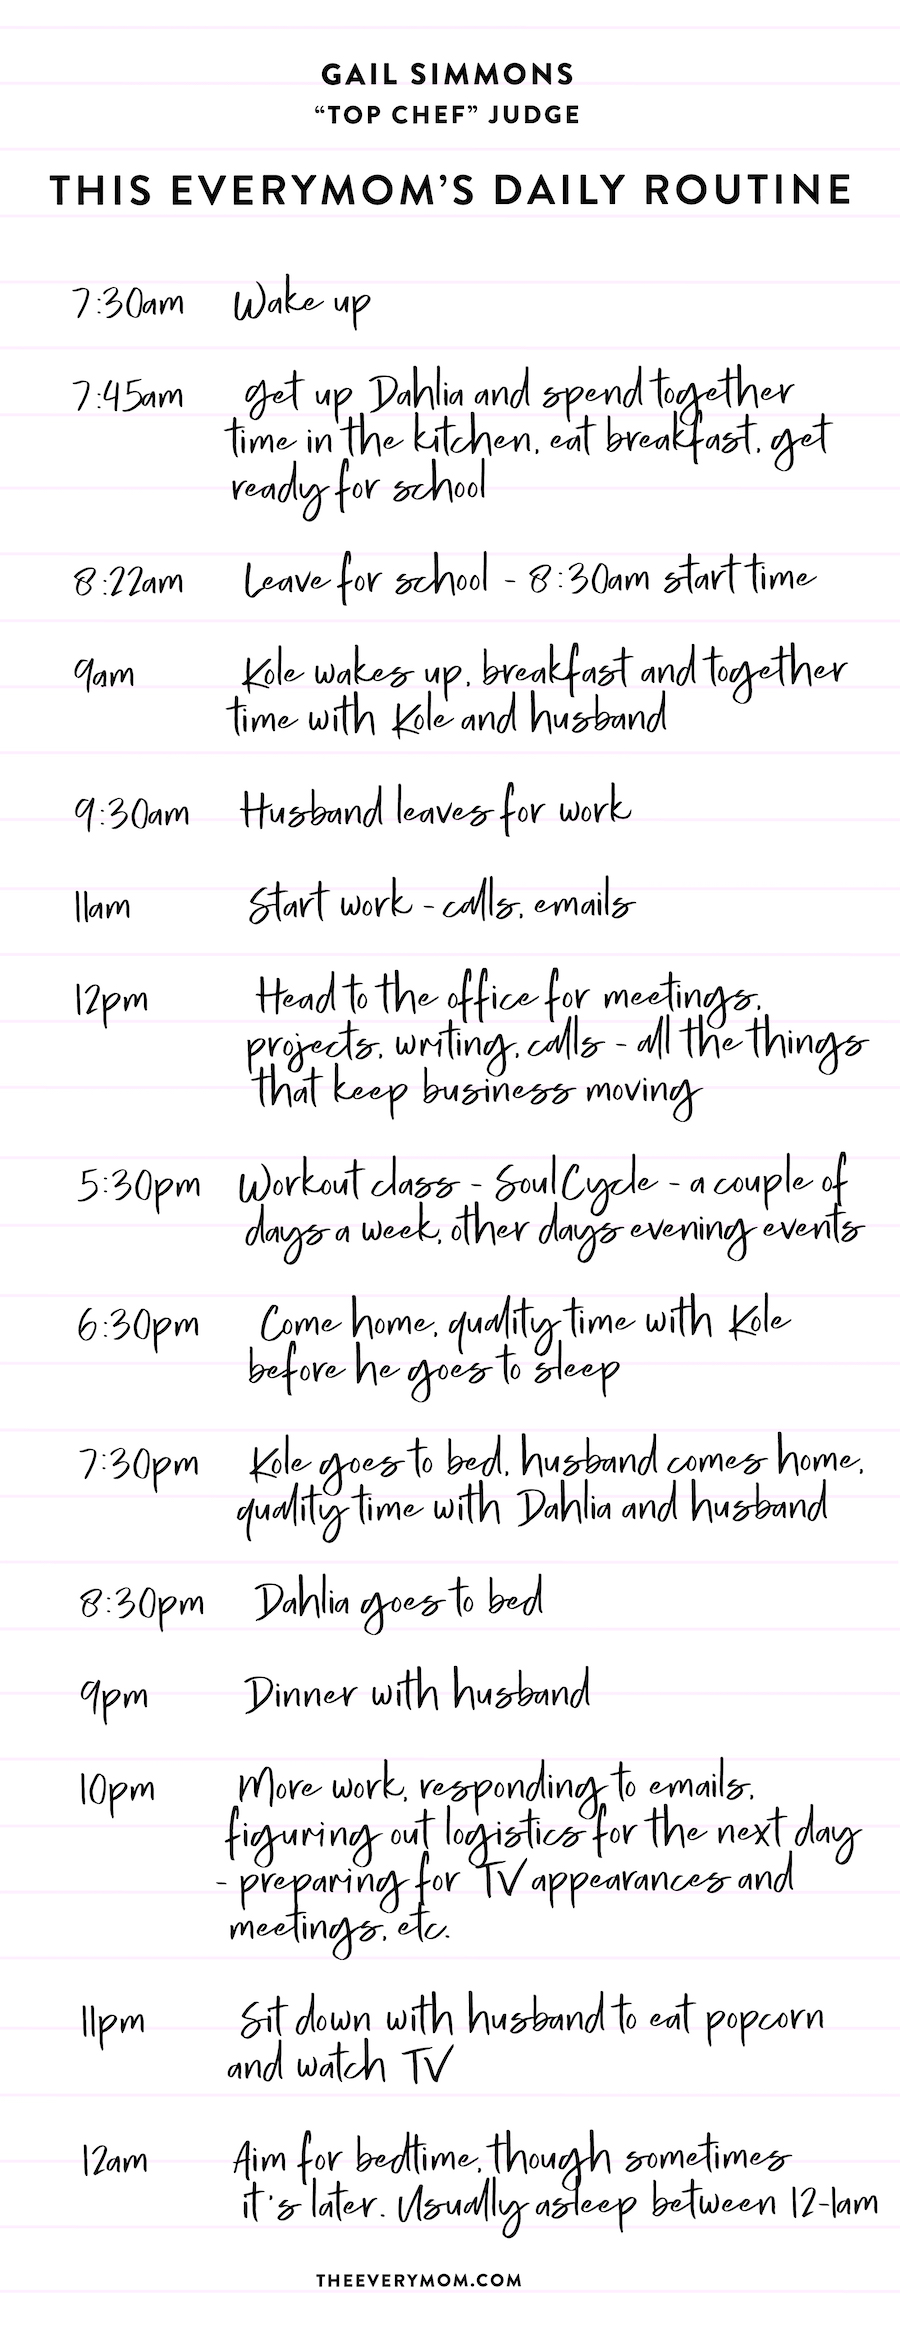 GAIL SIMMONS
“TOP CHEF” JUDGE
THIS EVERYMOM’S DAILY ROUTINE
7:30am Wake up
7:45am get up Dahlia and spend together
time in the kitchen, eat breakfast, get
ready for school
8:22am Leave for school - 8:30am start time
9am Kole wakes up, breakfast and together
time with Kole and husband
9:30am Husband leaves for work
11am Start work - calls, emails
12pm Head to the office for meetings,
projects, writing, calls - all the things
that keep business moving
5:30pm Workout class - SoulCycle - a couple of
days a week, other days evening events
6:30pm Come home, quality time with Kole
before he goes to sleep
7:30pm Kole goes to bed, husband comes home,
quality time with Dahlia and husband
8:30pm Dahlia goes to bed
9pm Dinner with husband
10pm More work, responding to emails,
figuring out logistics for the next day
- preparing for TV appearances and
meetings, etc.
11pm Sit down with husband to eat popcorn
and watch TV
12am Aim for bedtime, though sometimes
it's later. Usually asleep between 12-1am
THEEVERYMOM.COM